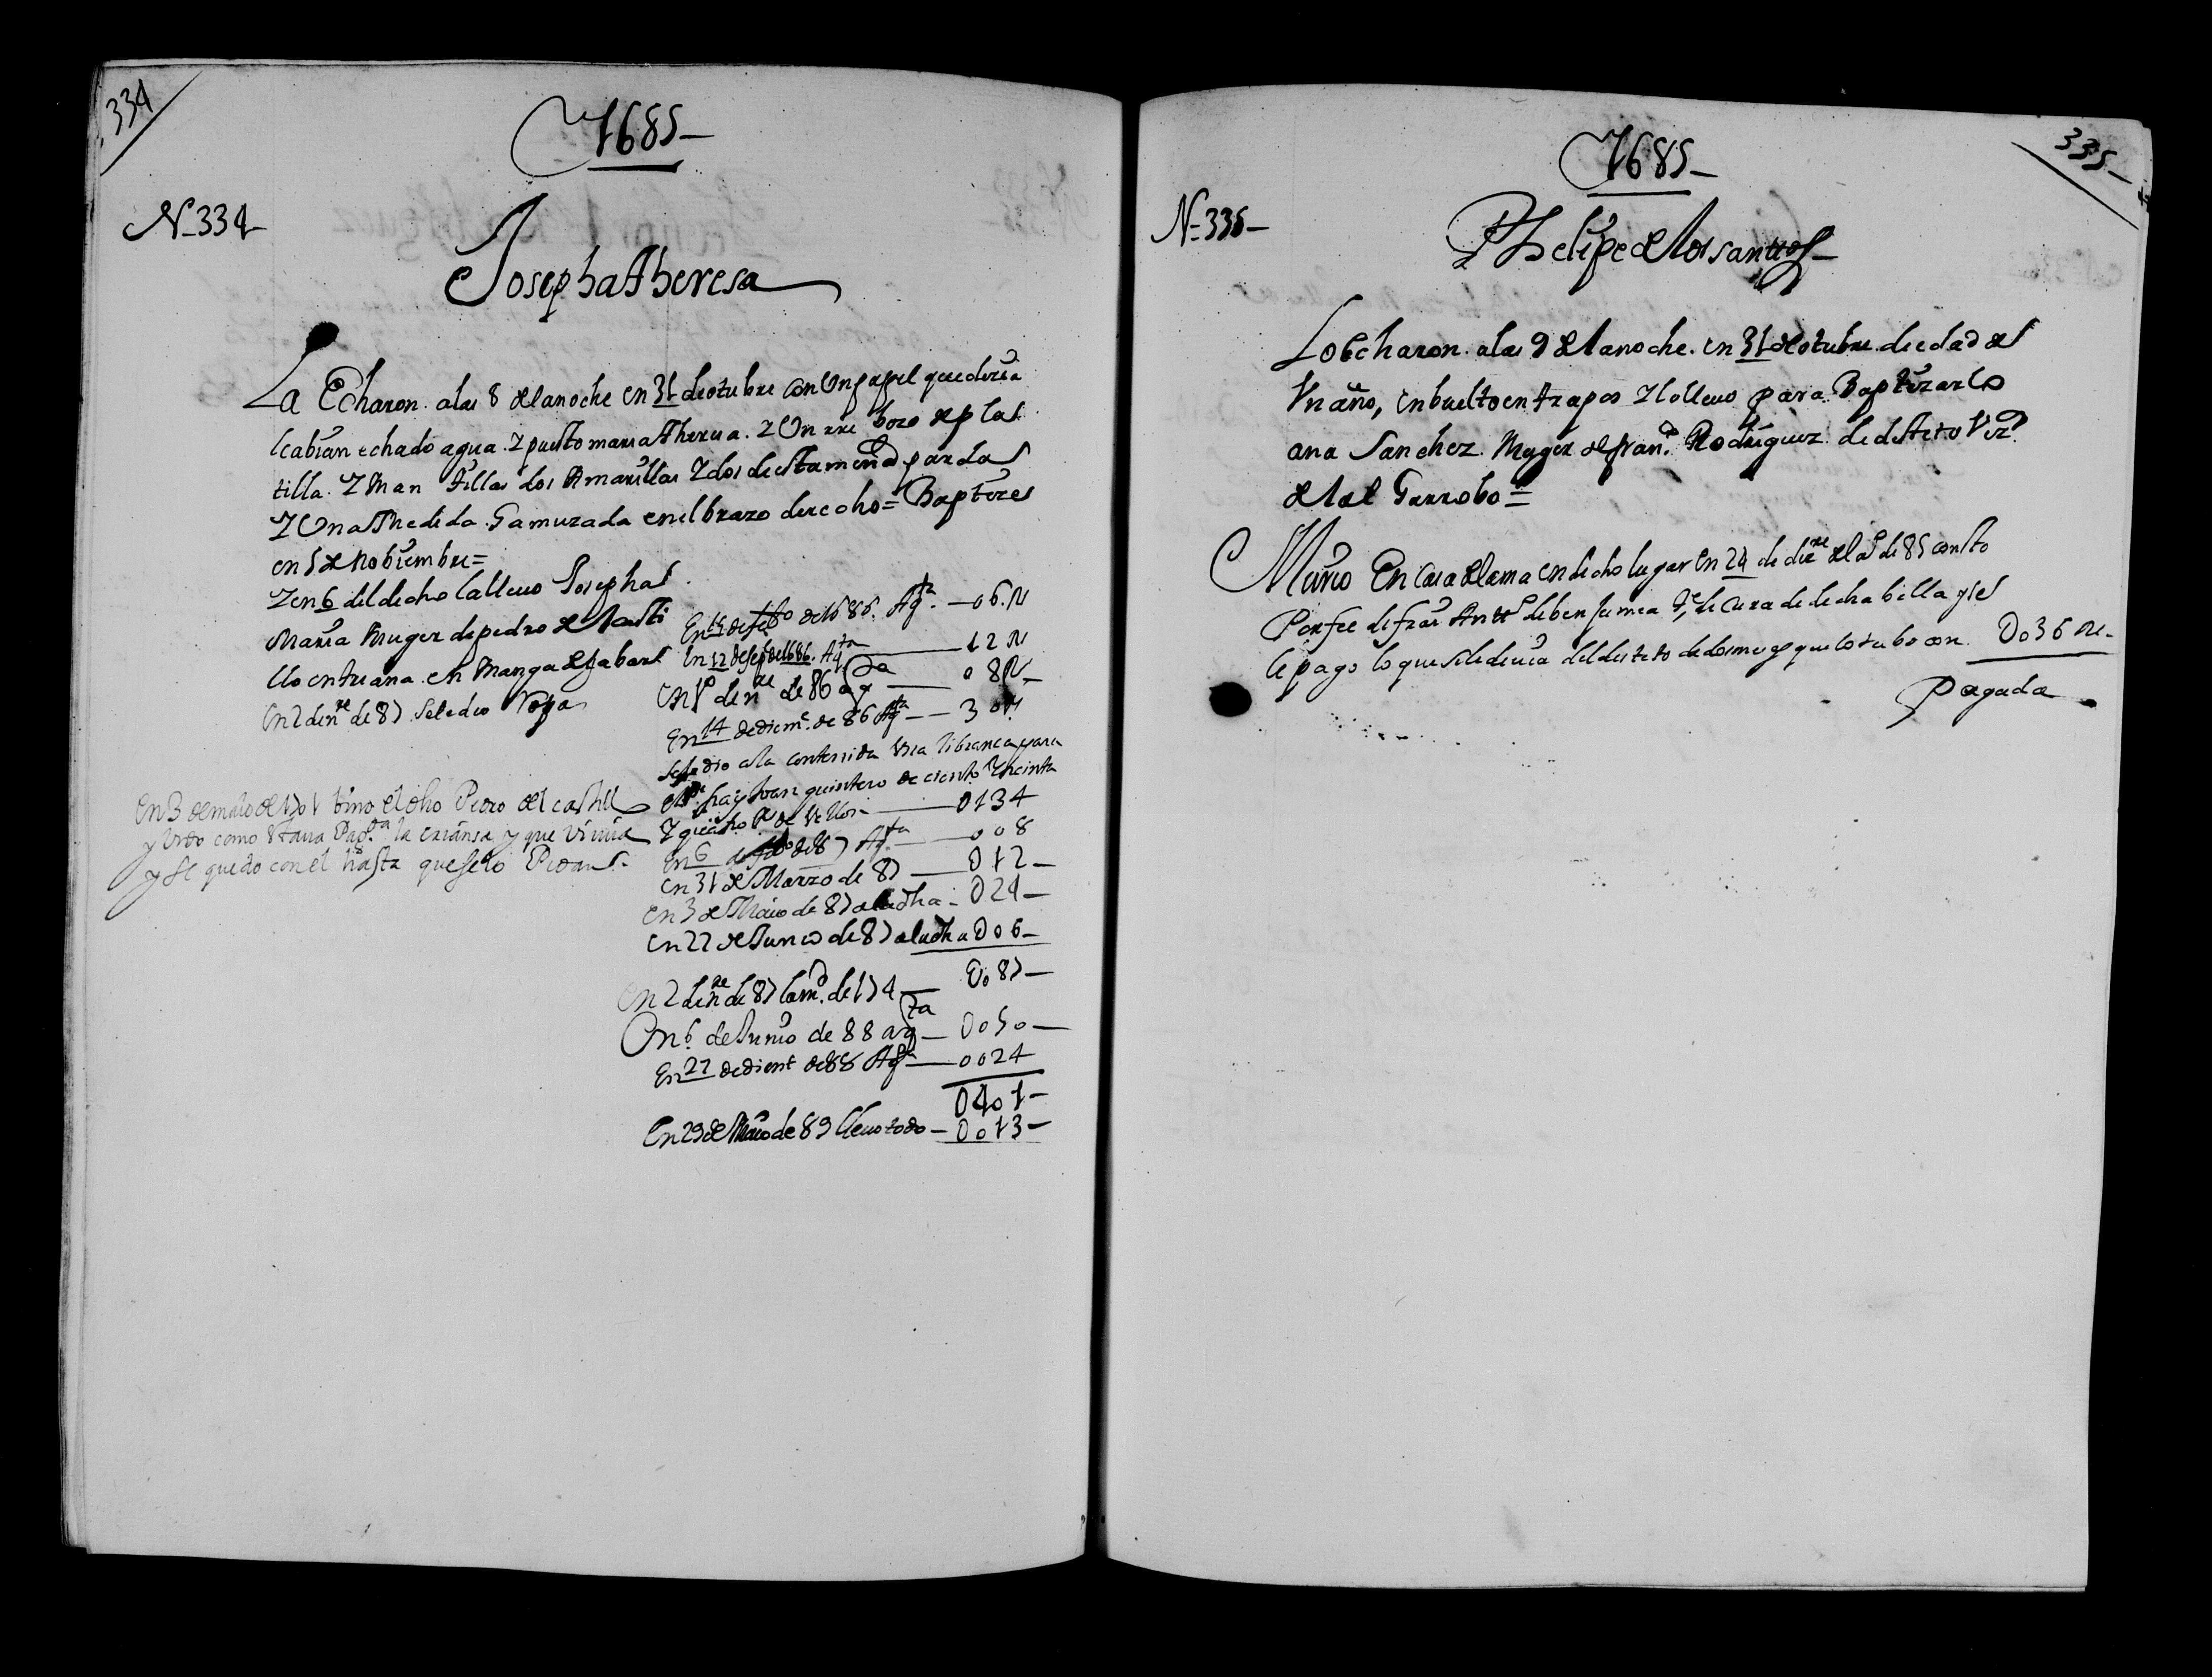 334
1685
N 334
Josepha Theresa
La Echaron. a las 8 de la noche en 31 de otubre con Un papel que decia
le abian echado agua. Y puesto maria Theresa. Y Un rebozo de plas
tilla. Y Man tillas dos Amarillas Y dos de estameña pardas
Y Una Medida Gamuzada en el brazo derecho =
en 5 de nobiembre =
Y en 6 del dicho la lleuo Josepha
Maria Muger de pedro del Casti
llo en triana. en
En 2 de nre de 87 se le dio Ropa
En 15 de febo de 1686. Agta — 06. R
En 12 de sepe de 1686. Agta — 12 R
En 1º de nre de 86 agta — 08 R
En 14 de diciemre de 86 Agta — 30 R
se le dio a la contenida Una libranca para
fray Juan quintero de ciento Y treinta
Y quatro Rs de Vellon — 0134
En 6 de febo de 87 Agta — 008
en 31 de Marzo de 87 — 012
en 3 de Maio de 87 a la dha — 024
en 22 de Junio de 87 a la dha 006
En 2 de nre de 87 — 0087
En 6 de Junio de 88 agta — 0050
En 22 de diciemre de 88 Agta — 0024
0401
En 29 de Maio de 89 lleuo todo — 0013
En 3 de maio de 1701 bino el dho Pedro del castillo
y bido como estaua Pagda la criansa y que viuia
y se quedo con el hasta que se lo Pidan
335
1685
N 335
Phelipe de los santos
Lo Echaron. a las 9 de la noche. en 31 de otubre. de edad de
Un año, enbuelto en trapos Y lo lleuo para Baptizarlo
ana Sanchez Muger de Franco Rodriguez de desteto Vezo
del Garrobo =
Murio En casa del ama en dicho lugar en 24 de dizre del año de 85 consto
Por fee de frai Antto de Cura de dicha billa y se
le pago lo que se le deuia del desteto de dos meses que lo tubo con 0036 Rs
Pagada